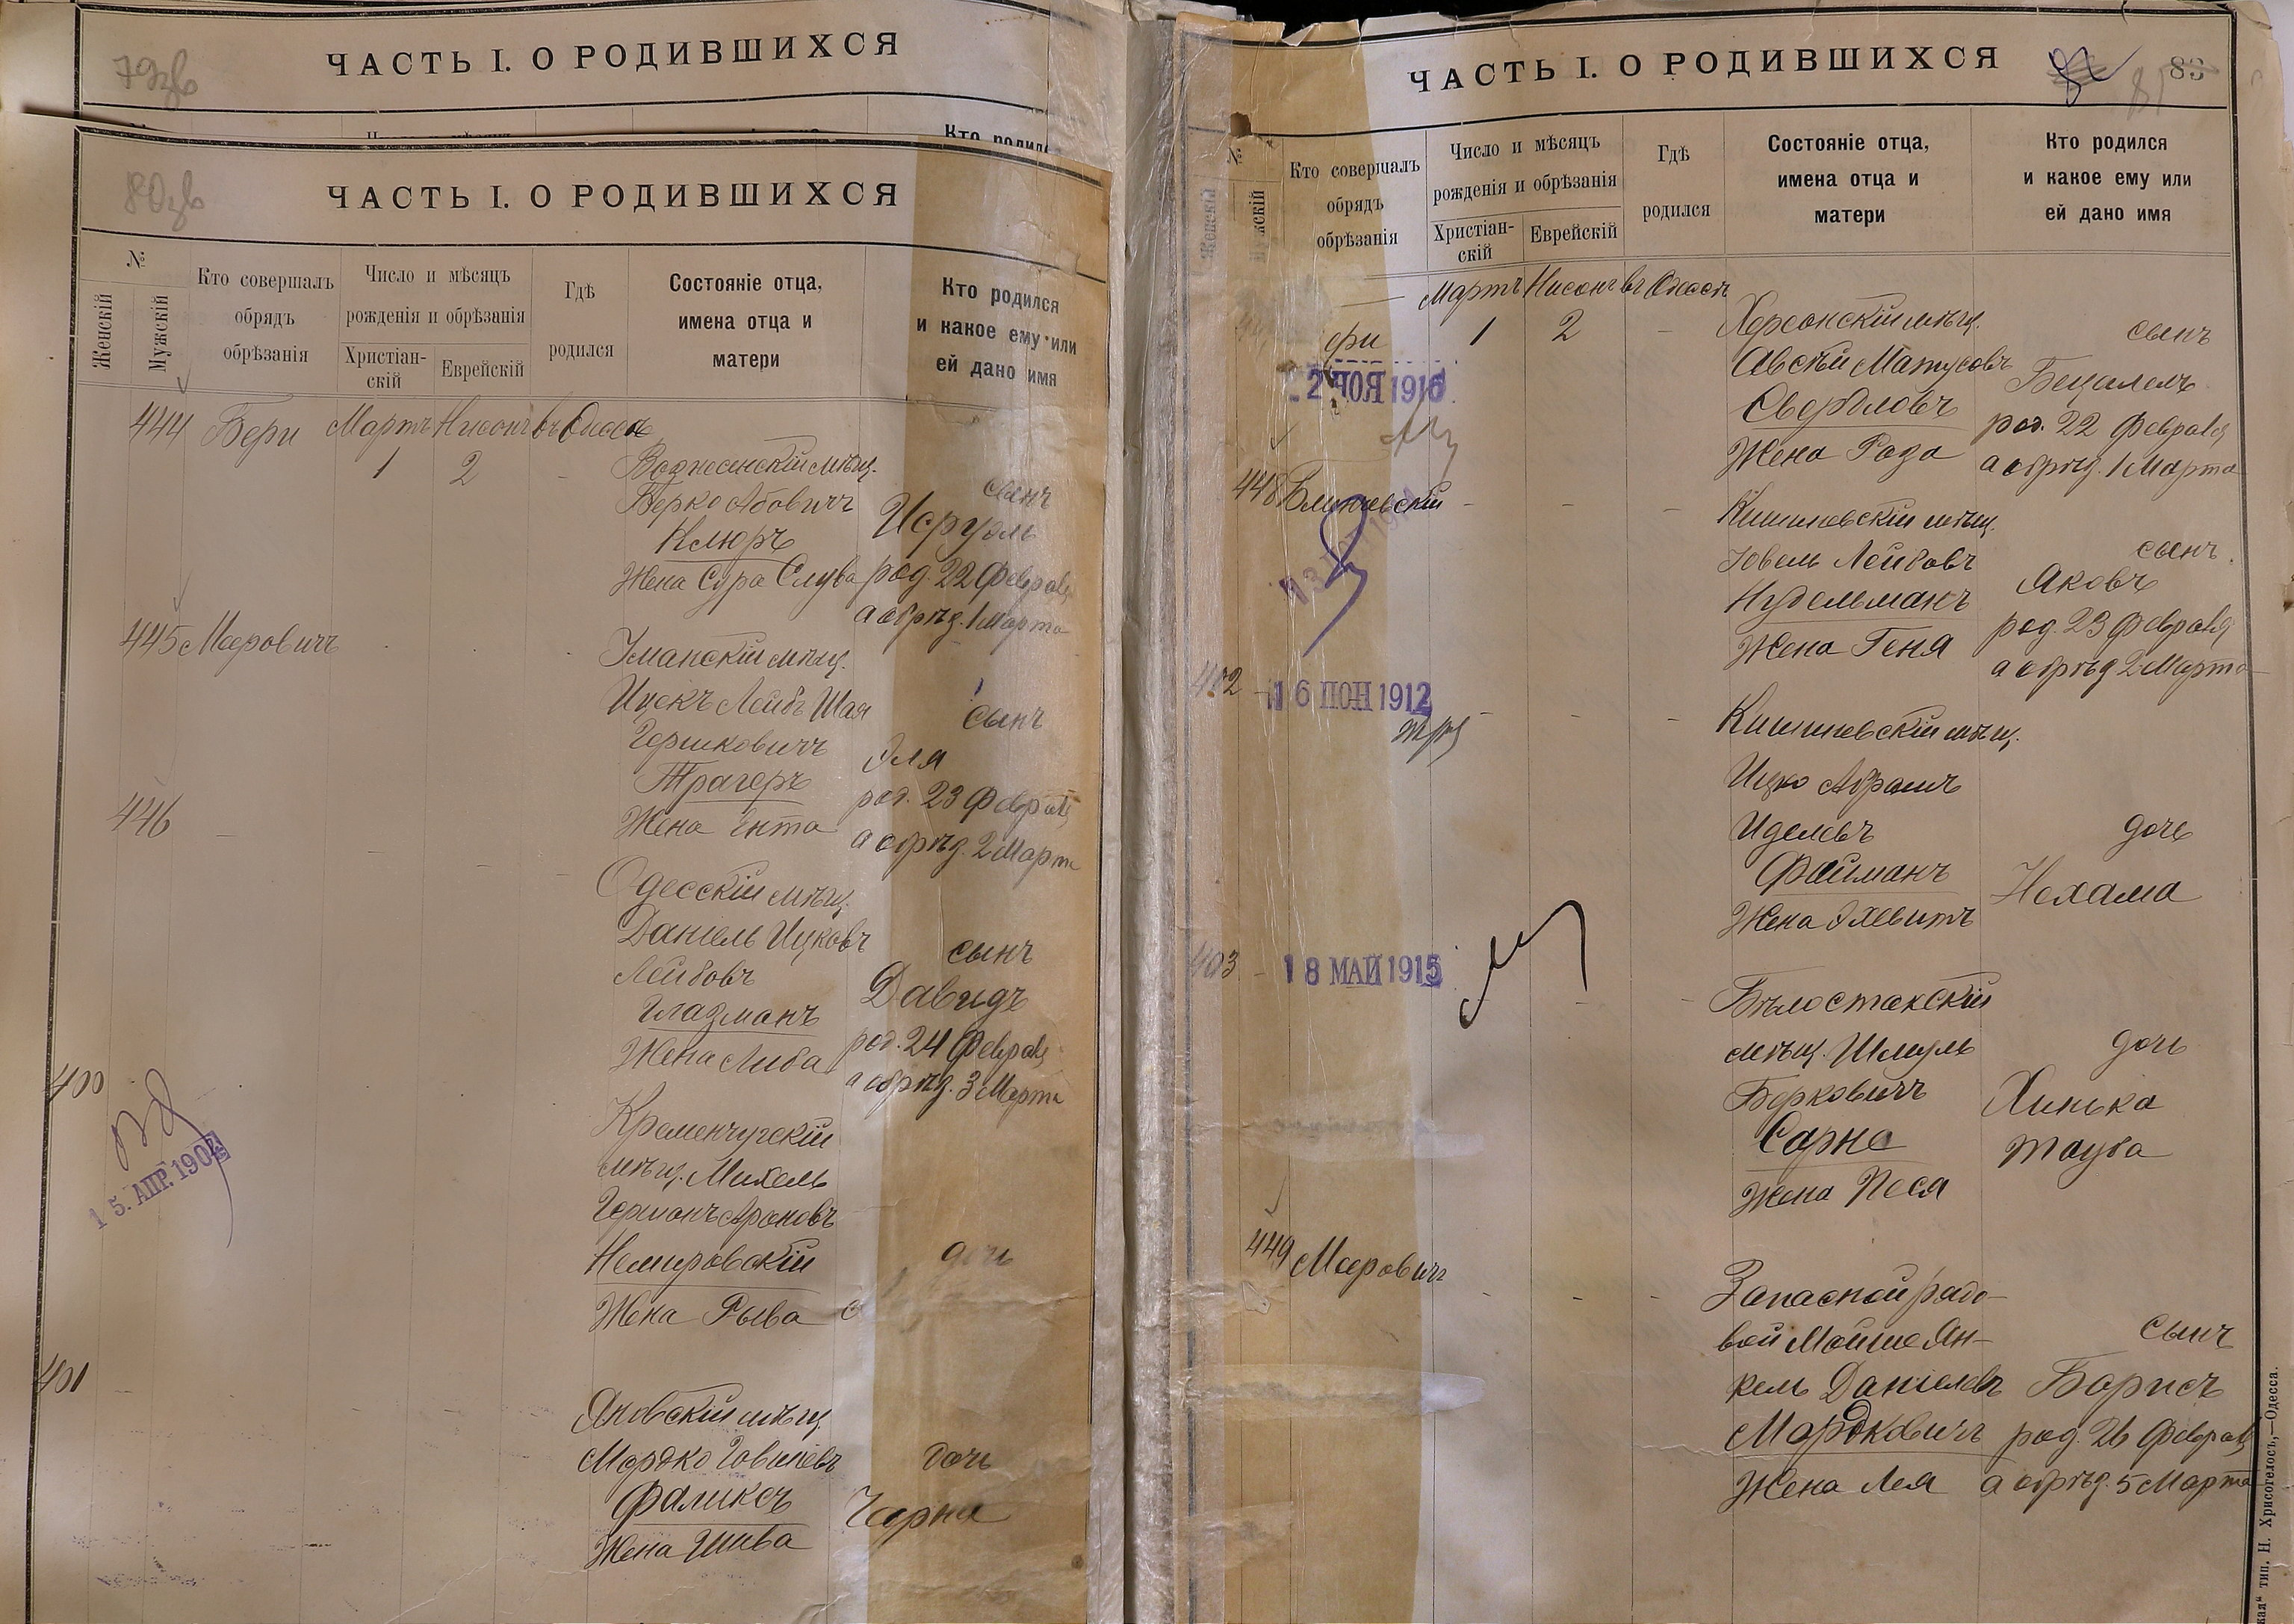 79зв
ЧАСТЬ I. О РОДИВШИХСЯ
80зв
ЧАСТЬ I. О РОДИВШИХСЯ
№
Женскій
Мужскій
Кто совершалъ
обрядъ
обрѣзанія
Число и мѣсяцъ
рожденія и обрѣзанія
Христіан-
скій
Еврейскій
Гдѣ
родился
Состояніе отца,
имена отца и
матери
Кто родился
и какое ему или
ей дано имя
444 Бери Мартъ Нисонъ въ Одессѣ
1 2 -
Вознесенскій мѣщ.
Берко Абовичъ
Клюръ
Жена Сура Слува
сынъ
Исруэль
род. 22 Февраля
а обрѣз. 1 Марта
445 Мееровичъ
Уманскій мѣщ.
Ицекъ Лейбъ Шая
Гершковичъ
Трагеръ
Жена Ента
сынъ
Эля
род. 23 Февраля
а обрѣз. 2 Марта
446 - - - -
Одесскій мѣщ.
Даніель Ицковъ
Лейбовъ
Глазманъ
Жена Либа
сынъ
Давидъ
род. 24 Февраля
а обрѣз. 3 Марта
400
15. АПР. 190
Кременчугскій
мѣщ. Михель
Германъ Ароновъ
Немировскій
Жена Рыва
дочь
401
Яновскій мѣщ.
Мордко
Фаликсъ
Жена Шива
дочь
Чарна
ЧАСТЬ I. О РОДИВШИХСЯ
83
№
Женскій
Мужскій
Кто совершалъ
обрядъ
обрѣзанія
Число и мѣсяцъ
рожденія и обрѣзанія
Христіан-
скій
Еврейскій
Гдѣ
родился
Состояніе отца,
имена отца и
матери
Кто родился
и какое ему или
ей дано имя
— Мартъ Нисонъ въ Одессѣ
1 2 -
2 НОЯ 1916
Херсонскій мѣщ.
Авсѣй Матусовъ
Свердловъ
Жена Роза
сынъ
Бецалелъ
род. 22 Февраля
а обрѣз. 1 Марта
448 - - -
Кишиневскій мѣщ.
Іовель Лейбовъ
Нудельманъ
Жена Геня
сынъ
Яковъ
род. 23 Февраля
а обрѣз. 2 Марта
402 -
16 ІЮН 1912
Кишиневскій мѣщ.
Ицко Абрамъ
Иделевъ
Файманъ
Жена
дочь
Нехама
403 -
18 МАЙ 1915
Бѣлостокскій
мѣщ. Шмуль
Берковичъ
Сарне
Жена Песя
дочь
Хинька
Тауба
449 Мееровичъ - - -
Запасной рядо-
вой Мойше Ян-
кель Даніелевъ
Мордковичъ
Жена Лея
сынъ
Борисъ
род. 26 Февраля
а обрѣз. 5 Марта
тип. Н. Хрисогелосъ,—Одесса.